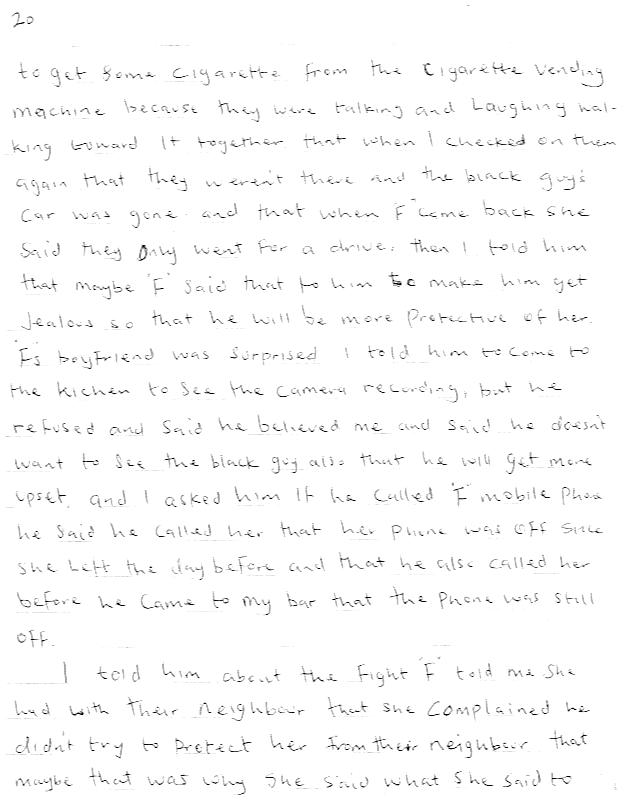 20
to get some cigarette from the cigarette vending
machine because they were talking and Laughing wal-
king toward It together that when I checked on them
again that they weren't there and the black guy's
Car was gone. and that when F" came back she
Said they Only went For a drive. then I told him
that maybe "F" said that to him to make him get
Jealous so that he will be more Protective of her.
"F's boyfriend was Surprised I told him to come to
the kichen to See the Camera recording, but he
refused and Said he believed me and Said he doesn't
want to See the black guy also that he will get more
upset. and I asked him If he Called "F" mobile Phone
he Said he Called her that her Phone was OFF Since
she Left the day before and that he also called her
before he Came to my bar that the Phone was Still
OFF.
I told him about the Fight "F" told me She
had with Their Neighbour that she Complained he
didn't try to Protect her From their neighbour that
maybe that was why She said what She said to